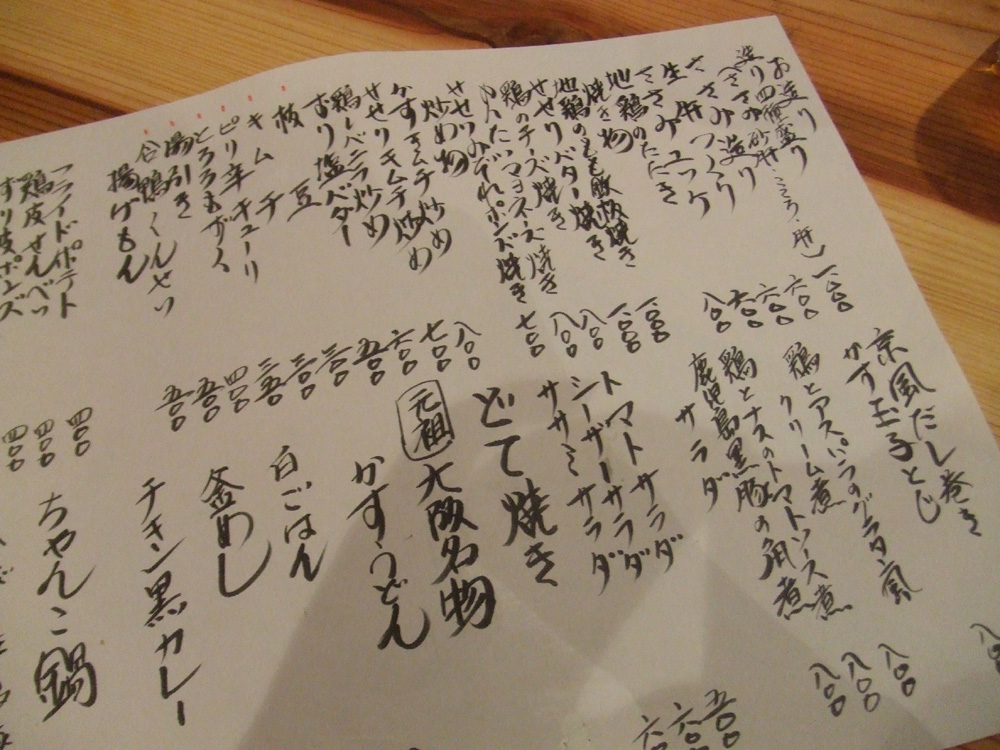 お造り
造り四種盛り
ささみ造り
生肝ユッケ
地鶏のたたき
焼き物
地鶏のもも鉄板焼き
せせりバター焼き
鶏のチーズ焼き
せせり
炒め物
かすキムチ炒め
せせりキムチ炒め
鶏レバニラ炒め
おり塩バター
枝豆
キムチ
ピリ辛キューリ
とろろもずく
湯引き
合鴨くんせい
揚げもん
フライドポテト
鶏皮せんべい
一、〇〇〇
六〇〇
六〇〇
六〇〇
八〇〇
一、〇〇〇
一、〇〇〇
八〇〇
八〇〇
七〇〇
八〇〇
七〇〇
六〇〇
五〇〇
三〇〇
三〇〇
三五〇
四〇〇
五〇〇
五〇〇
四〇〇
四〇〇
四〇〇
京風だし巻き
かす玉子とじ
鶏とアスパラのグラタン風
クリーム煮
鶏とナスのトマトソース煮
鹿児島黒豚の角煮
サラダ
トマトサラダ
シーザーサラダ
ササミサラダ
どて焼き
元祖 大阪名物
かすうどん
白ごはん
釜めし
チキン黒カレー
ちゃんこ鍋
八〇〇
八〇〇
八〇〇
五〇〇
六〇〇
六〇〇